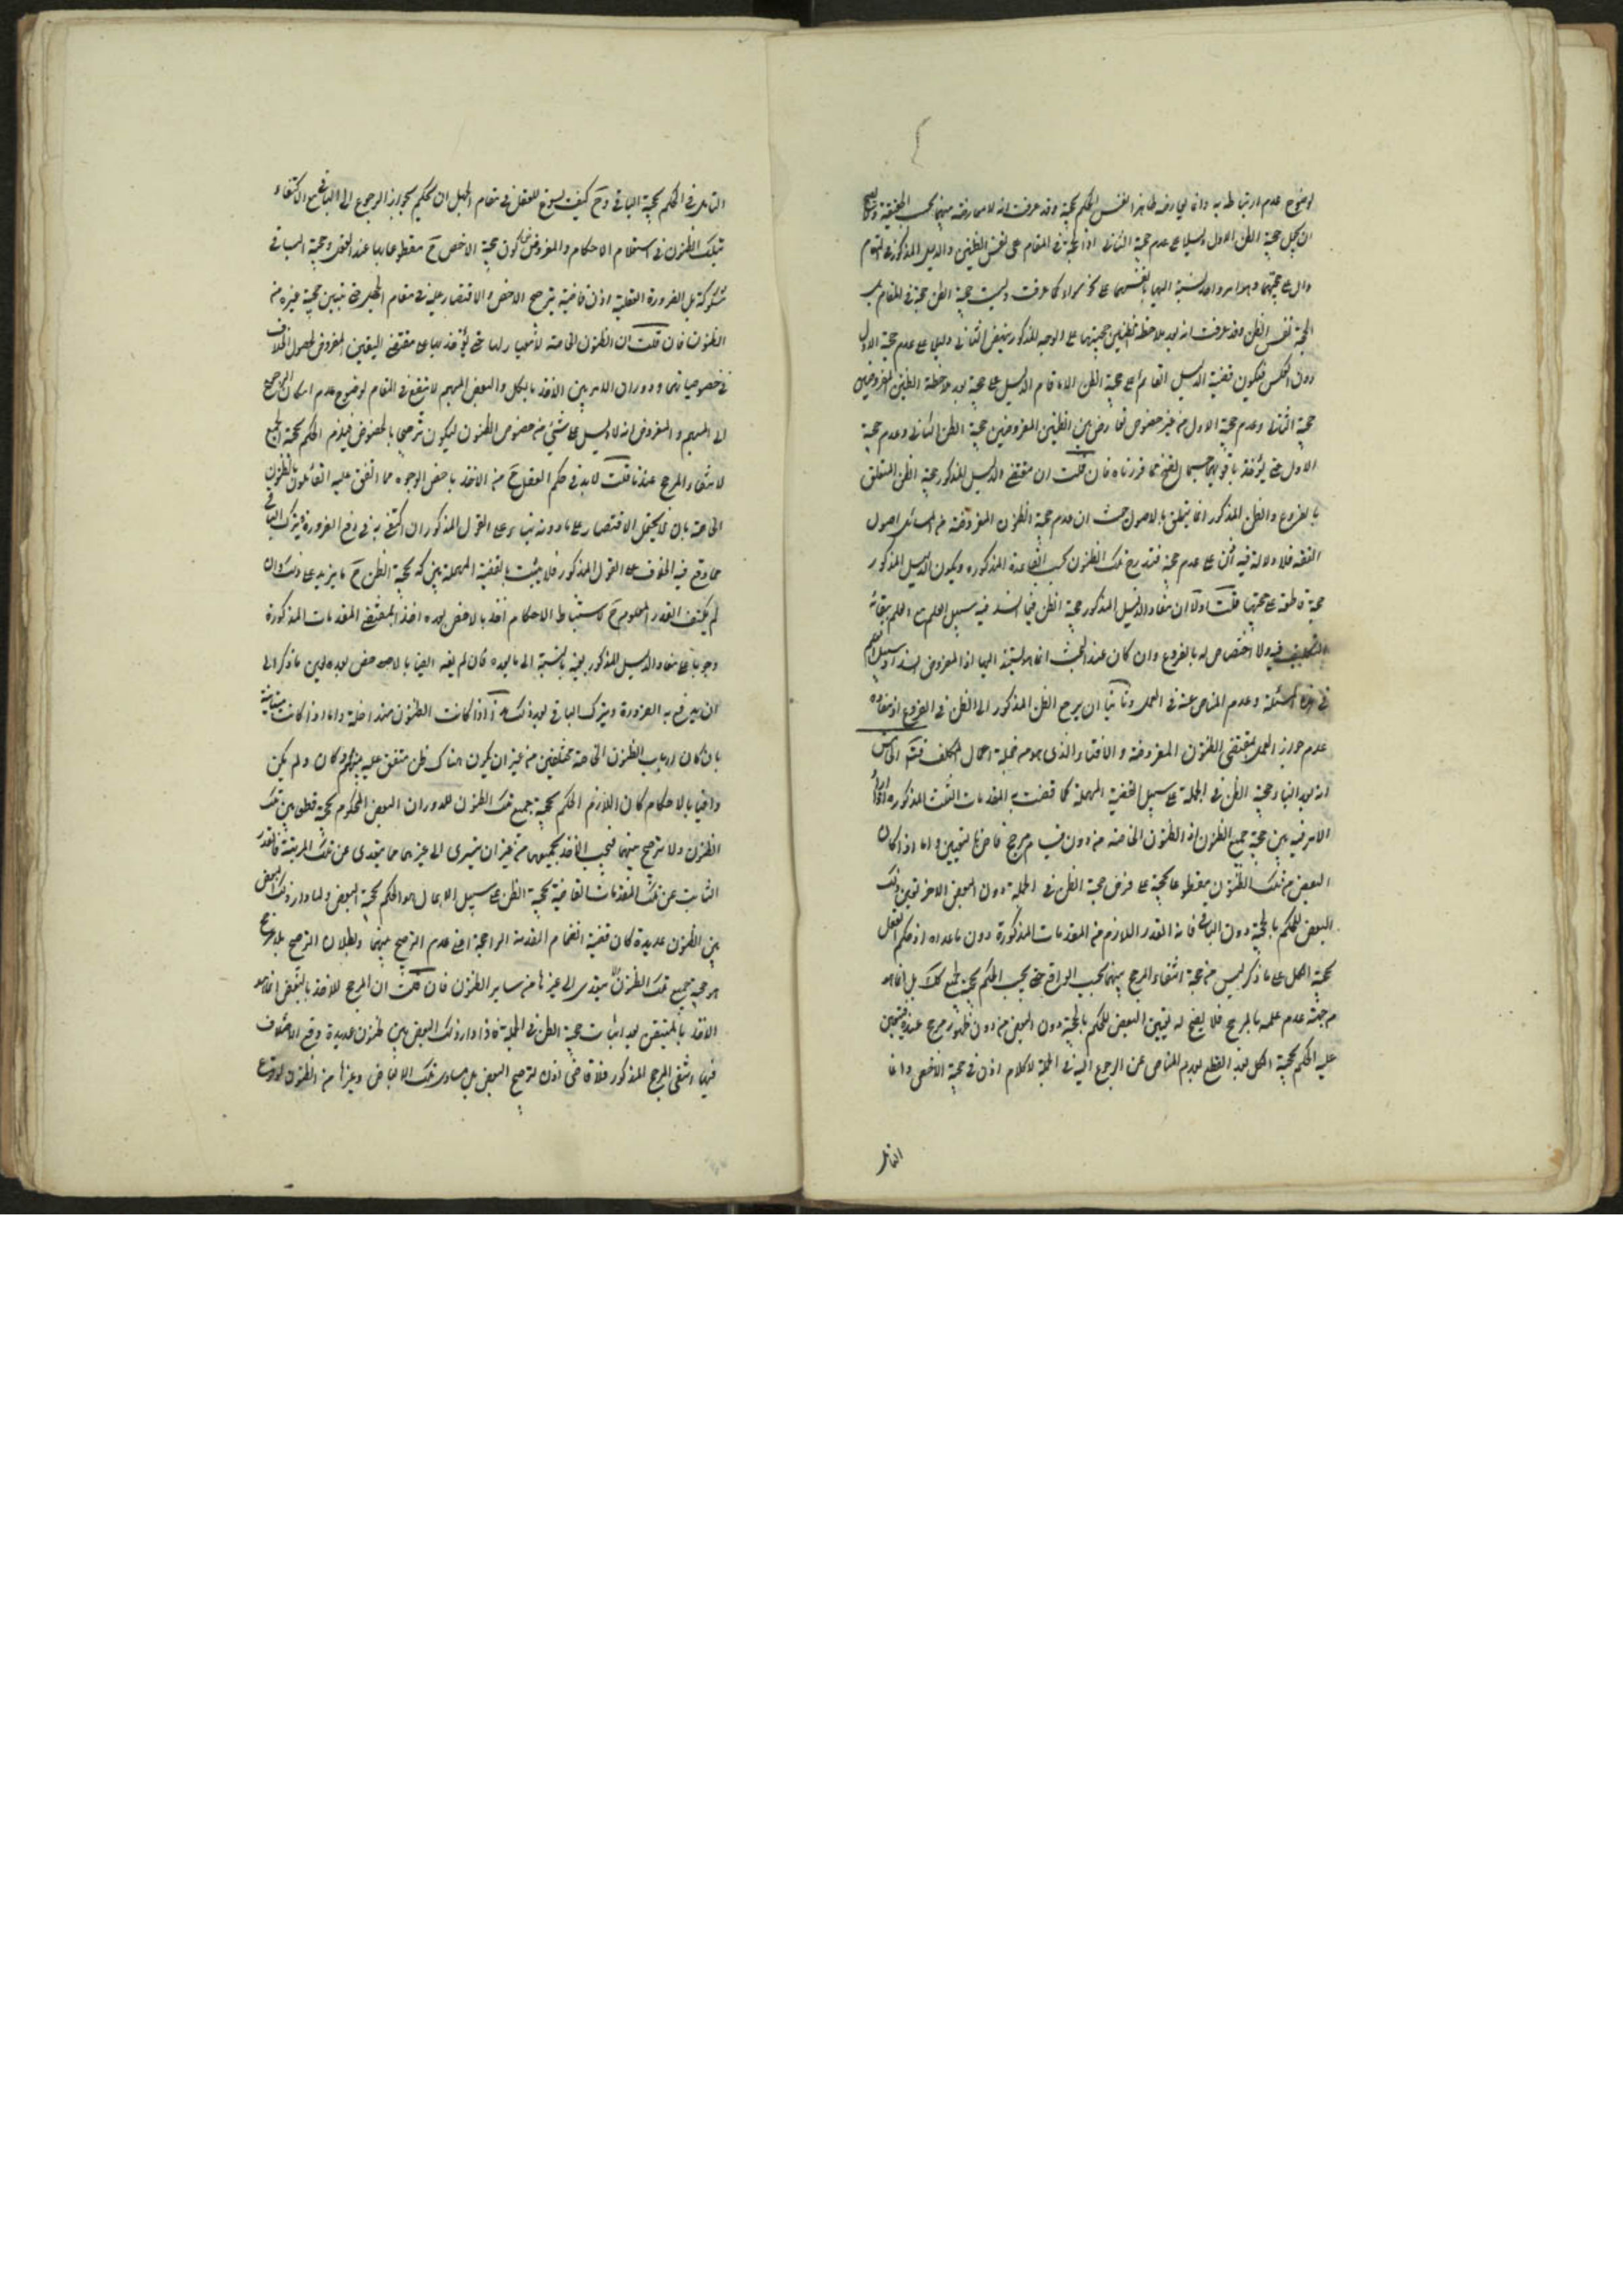 لوضوح عدم ارتباطه به وانما يعارضه ظاهرا نفس الحكم بحجية وقد عرفت انه لا معارضة بينهما بحسب الحقيقة
ان يجعل حجية الظن الاول دليلا على عدم حجية الثانى اذ الحجة فى المقام هى نفس الظنين والدليل المذكور فى المقام
دال على حجيتهما وهو امر واحد نسبته اليهما بانفسهما على نحو سواء كما عرفت وليست حجية الظن حجة فى المقام بل
الحجة نفس الظن وقد عرفت انه بعد ملاحظة الظنين وحجيتهما على الوجه المذكور ينهض الثانى دليلا على عدم حجية الاول
دون العكس فيكون قضية الدليل القائم على حجية الظن الا ما قام الدليل على عدم حجيته بعد ملاحظة الظنين المفروضين
حجية الثانى وعدم حجية الاول من غير حصول تعارض بين الظنين المفروضين حجية الظن الثانى وعدم حجية
الاول حتى يؤخذ باقويهما حسبما اتضح مما قررناه فان قلت ان مقتضى الدليل المذكور حجية الظن المتعلق
بالفروع والظن المذكور انما يتعلق بالاصول حيث ان عدم حجية الظنون المفروضة من مسائل اصول
الفقه فلا دلالة فيه اذن على عدم حجيته فتندرج تلك الظنون تحت القاعدة المذكورة ويكون الدليل المذكور
حجة قاطعة على حجيتها قلت اولا ان مفاد الدليل المذكور حجية الظن فيما انسد فيه سبيل العلم مع العلم ببقاء
التكليف فيه ولا اختصاص له بالفروع وان كان عند البحث انما هو بالنسبة اليها اذ المفروض انسداد سبيل العلم
فى هذه المسئلة وعدم المناص عنه فى العمل وثانيا ان مرجع الظن المذكور الى الظن فى الفروع اذ مفاده
عدم جواز العمل بمقتضى الظنون المفروضة والافتاء والذى هو من جملة اعمال المكلف فتأمل الخامس
انه بعد البناء على حجية الظن فى الجملة على سبيل القضية المهملة كما قضت به المقدمات الثلث المذكورة اذا دار
الامر فيه بين حجية جميع الظنون او الظنون الخاصة من دون قيام مرجح قاض بالتعيين واما اذا كان
البعض من تلك الظنون مقطوعا بحجيته على فرض حجية الظن فى الجملة دون البعض الاخر تعين ذلك
البعض للحكم بالحجية دون الباقى فانه القدر اللازم من المقدمات المذكورة دون ما عداه اذ حكم العقل
بحجية الكل على ما ذكر ليس من جهة انتفاء المرجح بينهما بحسب الواقع حتى يجب الحكم بحجية الجميع كلا بل انما هو
من جهة عدم علمه بالمرجح فلا يصح له تعيين البعض للحكم بالحجية دون البعض من دون ظهور مرجح عنده فيتعين
عليه الحكم بحجية الكل بعد القطع بعدم المناص عن الرجوع اليه فى الجملة لا كلام اذن فى حجية الاخص وانما
التأمل
التأمل فى الحكم بحجية الباقى وح كيف يسوغ للعقل فى مقام الجهل ان يحكم بجواز الرجوع الى الباقى مع الاكتفاء
بتلك الظنون فى استعلام الاحكام والمفروض كون حجية الاخص ح مقطوعا بها عند العقل وحجية الباقى
مشكوكة بل الضرورة العقلية اذن قاضية بترجيح الاخص والاقتصار عليه فى مقام الجهل حتى يتبين حجية غيره من
الظنون فان قلت ان الظنون الخاصة لا معيار لها حتى يؤخذ بها على مقتضى اليقين المفروض لحصول الخلاف
فى خصوصياتها ودوران الامر بين الاخذ بالكل والبعض المبهم لا ينفع فى المقام لوضوح عدم امكان الرجوع
الى المبهم والمفروض انه لا دليل على شئ من خصوص الظنون ليكون ترجيحا بالخصوص فيلزم الحكم بحجية الجميع
لانتفاء المرجح عندنا قلت لا بد فى حكم العقل ح من الاخذ باخص الوجوه مما اتفق عليه القائلون بالظنون
الخاصة بان لا يحتمل الاقتصار على ما دونه بناء على القول المذكور ان اكتفى به فى دفع الضرورة فيترك الباقى
مما وقع فيه الخلاف على القول المذكور فلا يثبت بالقضية المهملة بين كون حجية الظن ح ما يزيد على ذلك وان
لم يكتف القدر المعلوم ح لاستنباط الاحكام اخذ بالاخص بعده اخذا بمقتضى المقدمات المذكورة
وجوبا على مفاد الدليل المذكور بعينه بالنسبة الى ما بعده فان لم يف ايضا بالاحكام اخذ بما بعده الى
ان يدفع به الضرورة ويترك الباقى بعد ذلك هذا اذا كانت الظنون متداخلة واما اذا كانت متباينة
بان كان ارباب الظنون الخاصة مختلفين من غير ان يكون هناك ظن متفق عليه بينهم او كان ولم يكن
وافيا بالاحكام كان اللازم الحكم بحجية جميع تلك الظنون لدوران البعض المحكوم بحجيته قطعا بين تلك
الظنون ولا ترجيح بينها فيجب الاخذ بجميعها من غير ان يسرى الى غيرها مما يتعدى عن تلك المرتبة فالقدر
الثابت عن تلك المقدمات القاضية بحجية الظن على سبيل الاهمال هو الحكم بحجية البعض ولما دار ذلك البعض
بين الظنون عديدة كان قضية انضمام المقدمة الرابعة اعنى عدم الترجيح بينها وبطلان الترجيح بلا مرجح
هو حجية جميع تلك الظنون لا يتعدى الى غيرها من ساير الظنون فان قلت ان المرجح للاخذ بالبعض انما هو
الاخذ بالمتيقن بعد اثبات حجية الظن فى الجملة فاذا دار ذلك البعض بين ظنون عديدة وقع الاختلاف
فيها انتفى المرجح المذكور فلا قاضى اذن لترجيح البعض بل يتساوى تلك الابعاض وغيرها من الظنون لوقوع